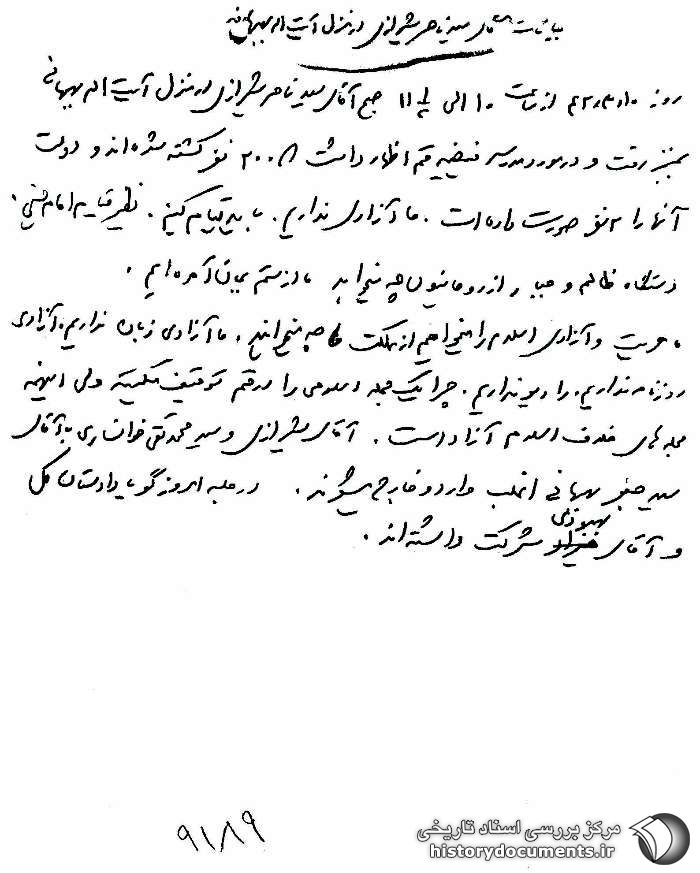 بیانات آقای سید ناصر شیرازی در منزل آیت اله بهبهانی
روز ۴۲٫۳٫۱۰ از ساعت ۱۰ الی ۱۱ صبح آقای سید ناصر شیرازی در منزل آیت اله بهبهانی
بمنبر رفت و در مورد مدرسه فیضیه قم اظهار داشت ۲۰۰ نفر کشته شده‌اند و دولت
آنها را ۲ نفر صورت داده است . ما آزادی نداریم . باید قیام کنیم . نظیر قیام امام حسین .
دستگاه ظالم و جبار از روحانیون چه میخواهد ما از ستم بجان آمده‌ایم .
ما حریت و آزادی اسلام را میخواهیم از مملکت چه میخواهند . ما آزادی زبان نداریم ، آزادی
روزنامه نداریم . رادیو نداریم . چرا یک مجله اسلامی را در قم توقیف میکنید ولی اینهمه
مجله‌های خلاف اسلام آزاد است . آقای شیرازی و سید محمد تقی خوانساری با آقای
سید جعفر بهبهانی اغلب وارد و خارج میشوند . در جلسه امروز گویا دادستان کل
و آقای بهبودی شرکت داشته‌اند .
۹۱۸۹
مرکز بررسی اسناد تاریخی
historydocuments.ir